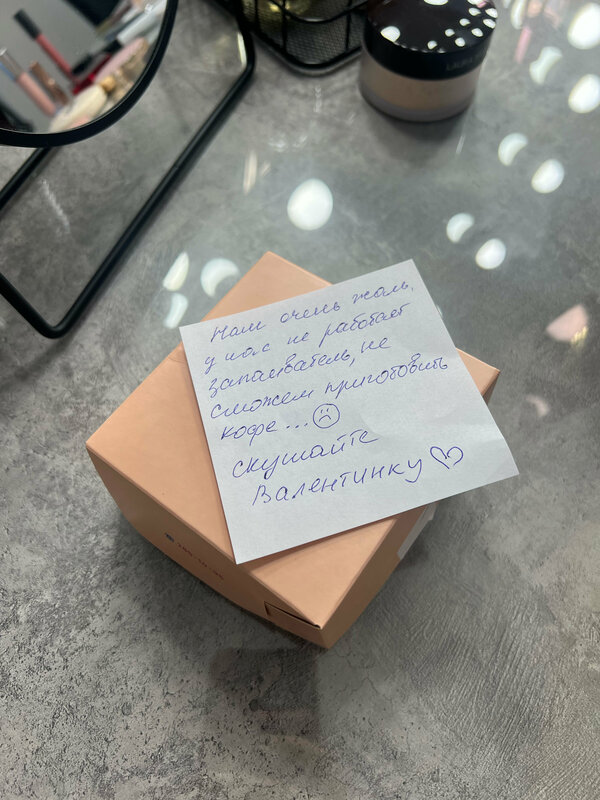 Нам очень жаль,
у нас не работает
запаиватель, не
сможем приготовить
кофе...
скушайте
Валентинку
LAURA